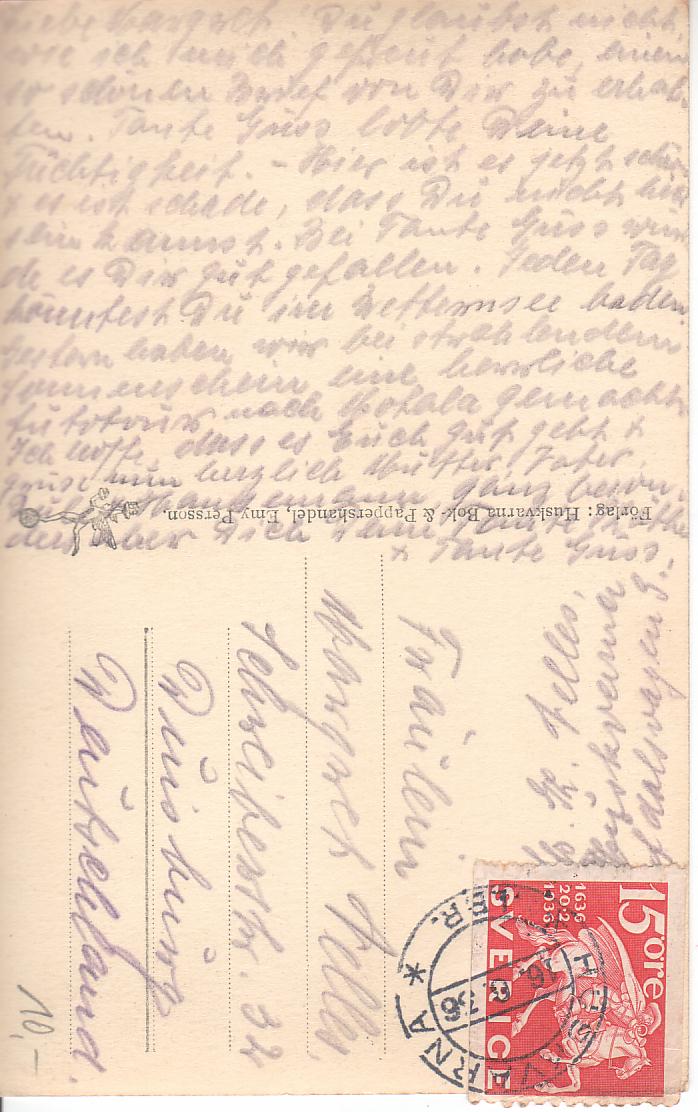 Liebe Margret. Du glaubst nicht,
wie ich mich gefreut habe, einen
so schönen Brief von Dir zu erhal-
ten. Tante Guss lobte Deine
Tüchtigkeit. - Hier ist es jetzt schön
& es ist schade, dass Du nicht hier
sein kannst. Bei Tante Guss wür-
de es Dir gut gefallen. Jeden Tag
könntest Du im Wetternsee baden.
Gestern haben wir bei strahlendem
Sonnenschein eine herrliche
Autotour nach Motala gemacht.
Ich hoffe, dass es Euch gut geht &
grüsse nun herzlich Mutter, Vater
ganz beson-
ders aber Dich Deine Tante
& Tante Guss.
Förlag: Huskvarna Bok- & Pappershandel, Emy Persson.
Fräulein
Margret Felles
32
Duisburg
Deutschland.
Felles,
Huskvarna
15 öre
1636
20 2
1936
SVERIGE
HUSKVARNA *
36
10,-